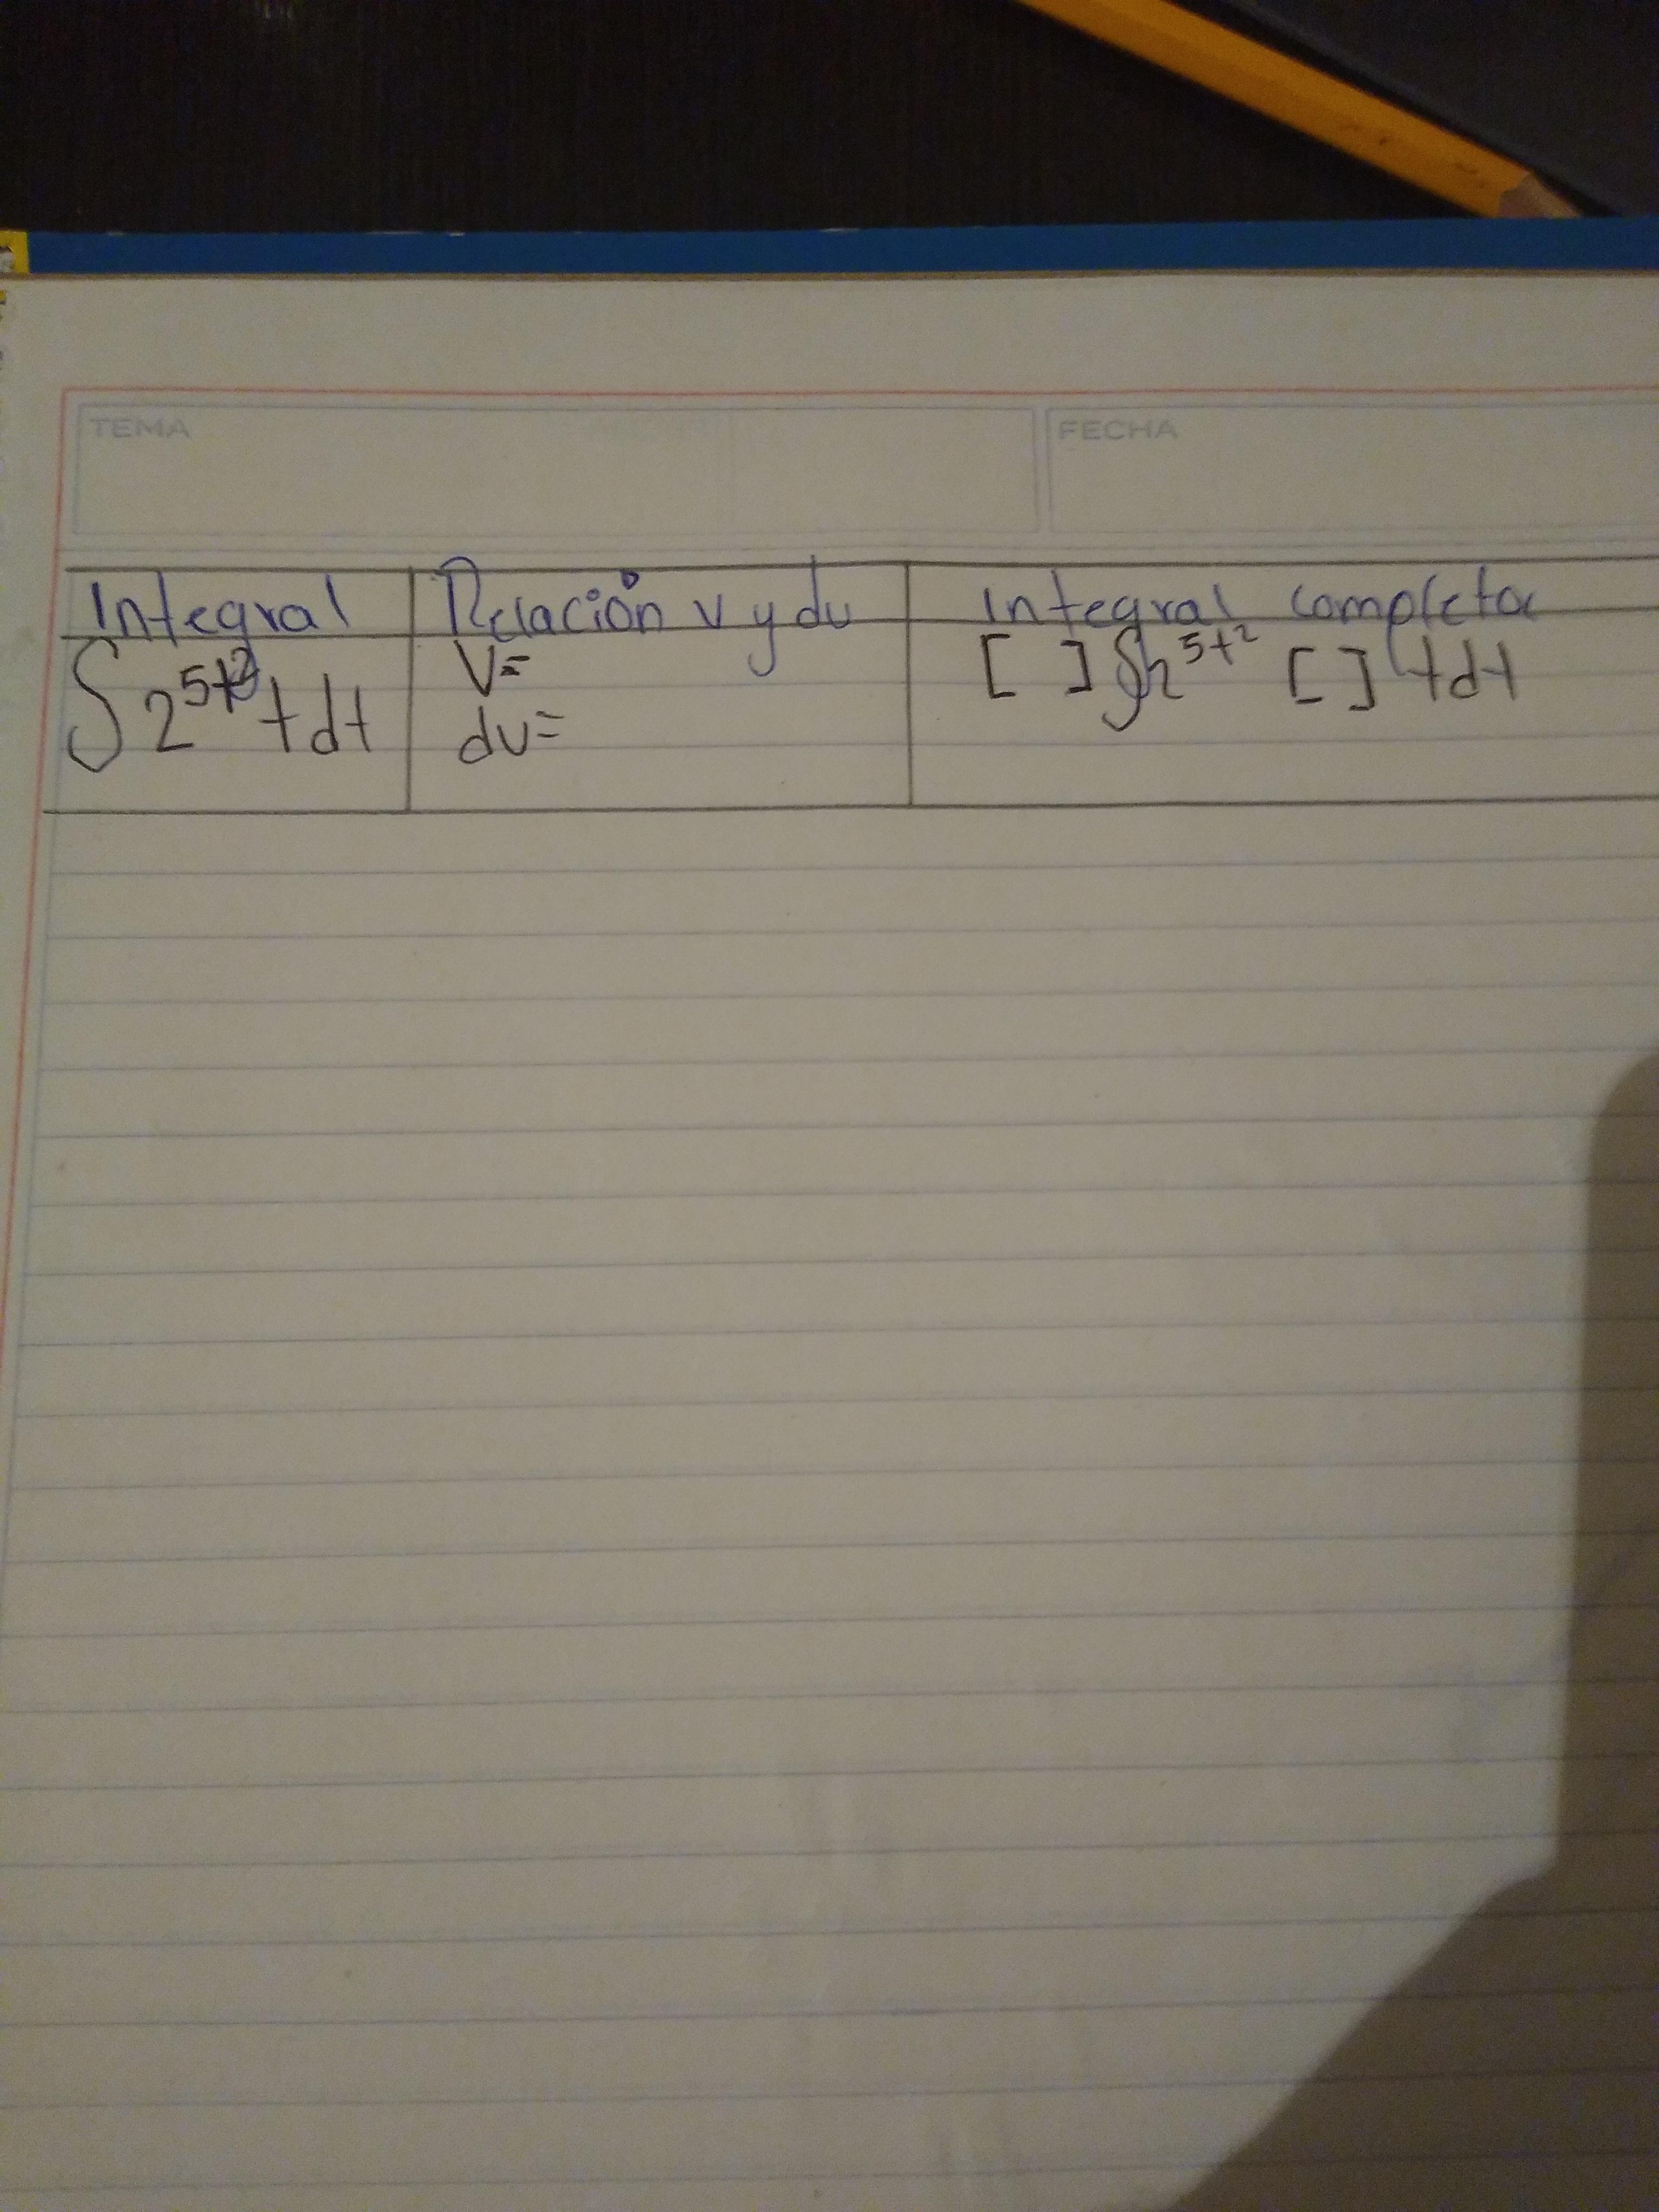 TEMA FECHA
Integral Relación v y du Integral completa
∫ 2^{5t²} t dt v= [ ] ∫ 2^{5t²} [ ] t dt
du=